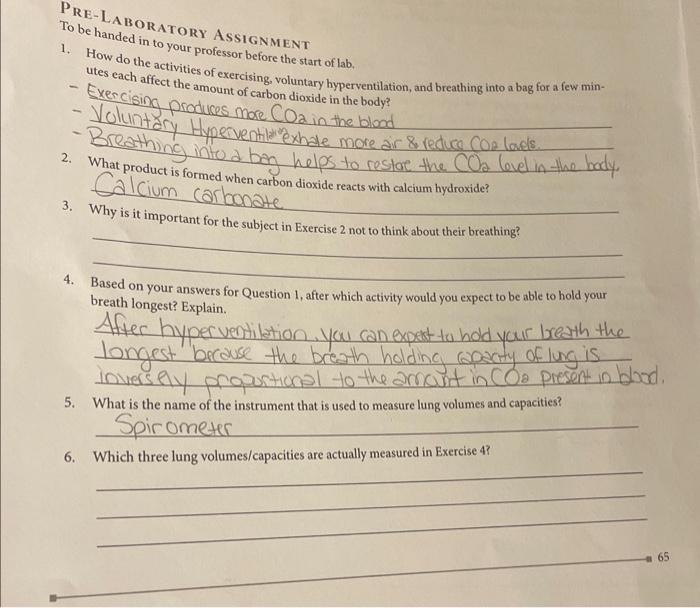 PRE-LABORATORY ASSIGNMENT
To be handed in to your professor before the start of lab.
1. How do the activities of exercising, voluntary hyperventilation, and breathing into a bag for a few min-
utes each affect the amount of carbon dioxide in the body?
- Exercising produces more CO2 in the blood
- Voluntary Hyperventilation exhale more air & reduce CO2 levels.
- Breathing into a bag helps to restore the CO2 level in the body.
2. What product is formed when carbon dioxide reacts with calcium hydroxide?
Calcium carbonate
3. Why is it important for the subject in Exercise 2 not to think about their breathing?
4. Based on your answers for Question 1, after which activity would you expect to be able to hold your
breath longest? Explain.
After hyperventilation, you can expect to hold your breath the
longest because the breath holding capacity of lung is
inversely proportional to the amount in CO2 present in blood.
5. What is the name of the instrument that is used to measure lung volumes and capacities?
Spirometer
6. Which three lung volumes/capacities are actually measured in Exercise 4?
65